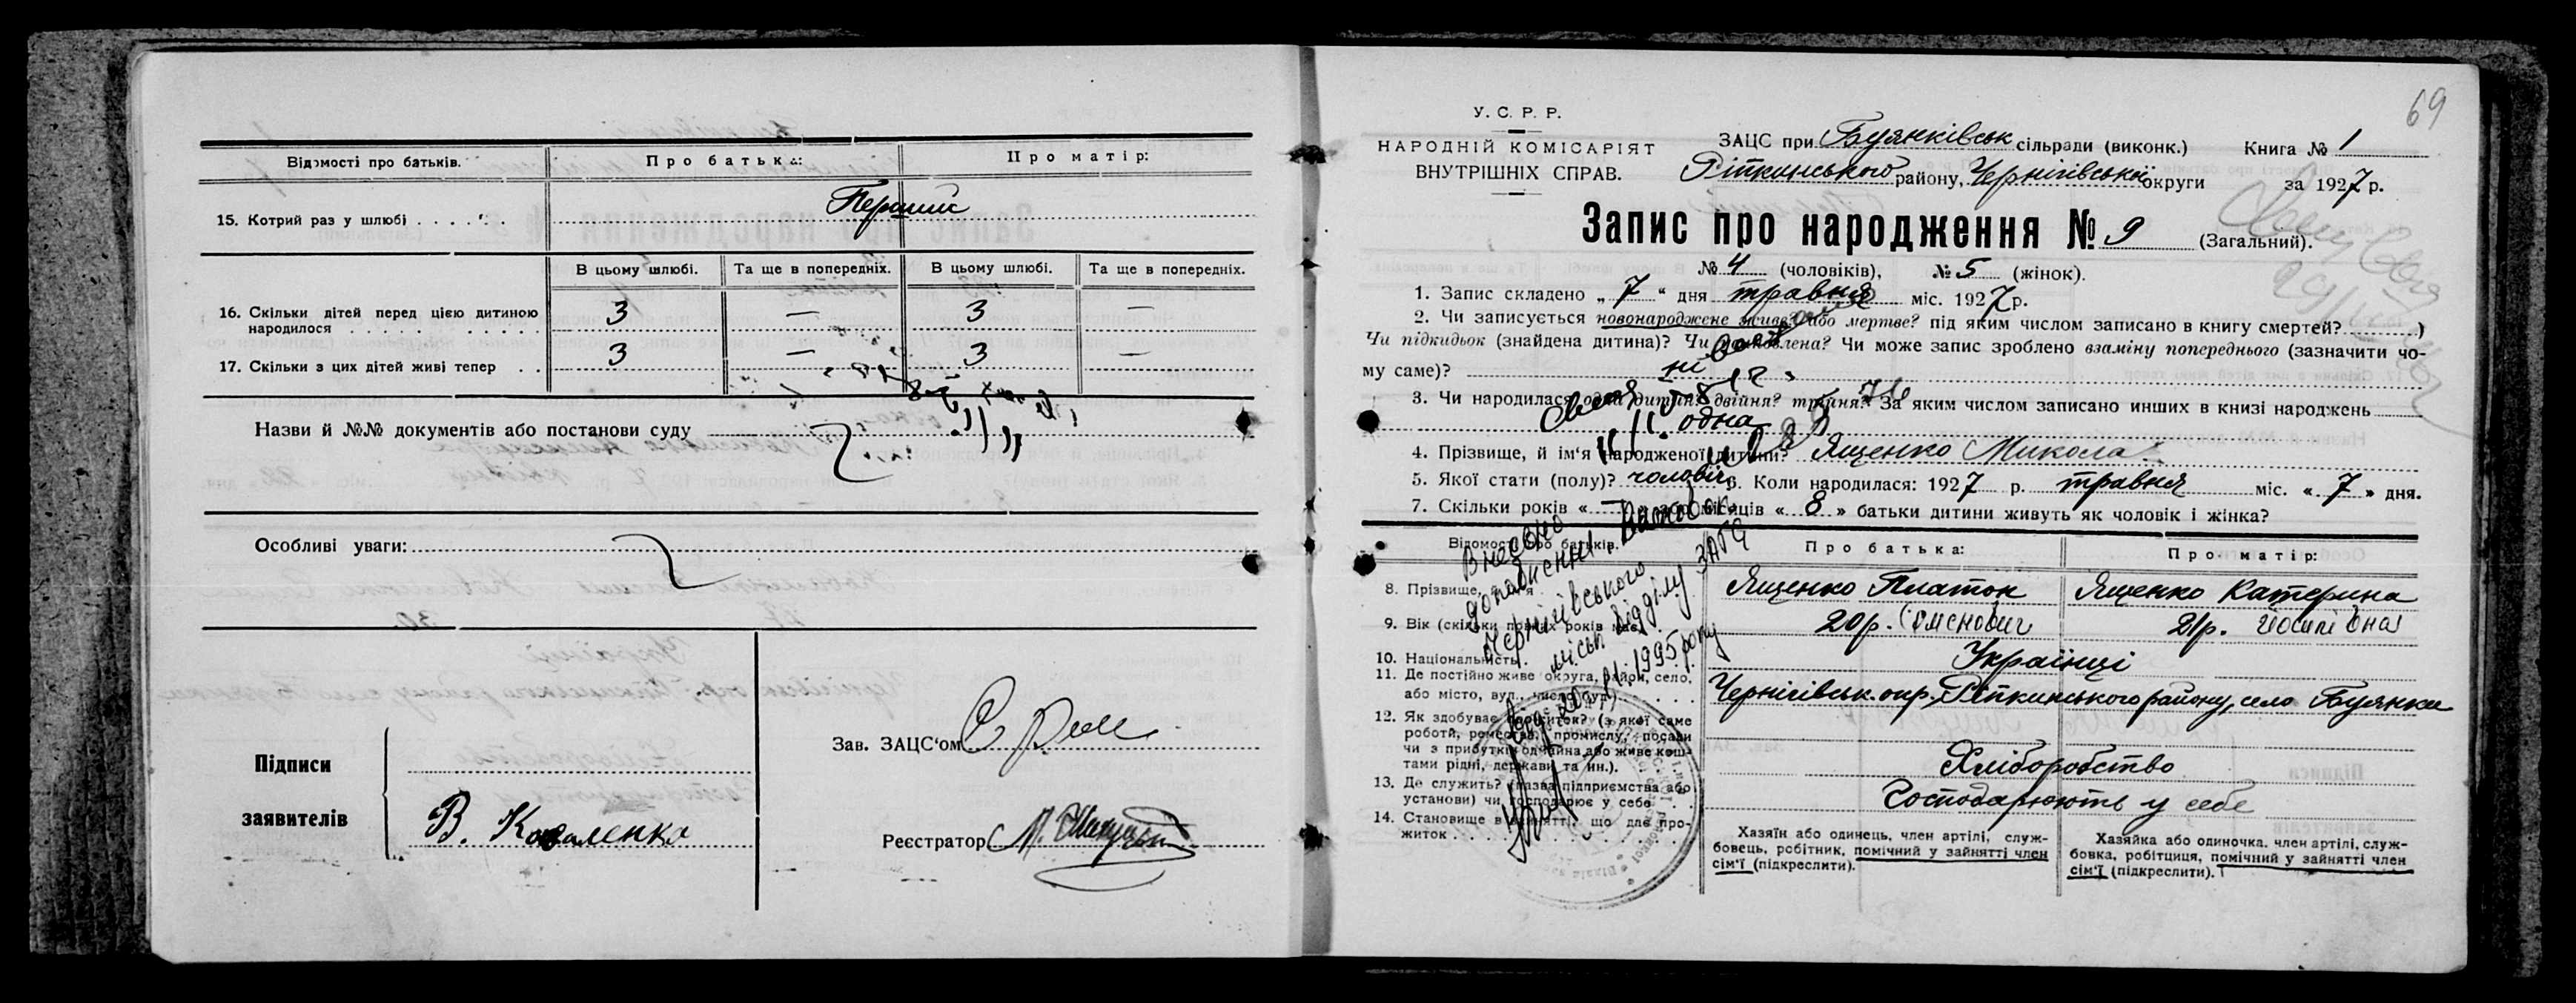 Відомості про батьків.
Про батька:
Про матір:
15. Котрий раз у шлюбі
Перший
В цьому шлюбі.
Та ще в попередніх.
В цьому шлюбі.
Та ще в попередніх.
16. Скільки дітей перед цією дитиною
народилося
3 — 3 —
17. Скільки з цих дітей живі тепер
3 — 3 —
Назви й №№ документів або постанови суду
Особливі уваги:
Підписи
заявителів
В. Коваленко
Зав. ЗАЦС'ом
Реєстратор
69
У. С. Р. Р.
НАРОДНІЙ КОМІСАРІЯТ
ВНУТРІШНІХ СПРАВ.
ЗАЦС при Буянківськ сільради (виконк.)
Книга № 1
Ріпкинського району, Чернігівської округи
за 1927 р.
Запис про народження № 9 (Загальний).
№ 4 (чоловіків), № 5 (жінок).
1. Запис складено „ 7 “ дня травня міс. 1927 р.
2. Чи записується новонароджене живе? або мертве? під яким числом записано в книгу смертей? )
Чи підкидьок (знайдена дитина)? Чи Чи може запис зроблено взаміну попереднього (зазначити чо-
му саме)? ні
3. Чи народилася одна дитина? двійня? трійня? За яким числом записано инших в книзі народжень
одна
4. Прізвище, й ім'я народженої дитини? Ященко Микола
5. Якої стати (полу)? чоловіч. 6. Коли народилася: 1927 р. травня міс. « 7 » дня.
7. Скільки років « — » або місяців « 8 » батьки дитини живуть як чоловік і жінка?
Внесено
доповнення
Чернігівського
міськ. відділу ЗАГС
20.11.1995 року
Відомості про батьків.
Про батька:
Про матір:
8. Прізвище, й ім'я
Ященко Платон
Ященко Катерина
9. Вік (скільки повних років має)
20 р. Семенович
21 р. Йосипівна
10. Національність.
Українці
11. Де постійно живе округа, район, село,
або місто, вул., число буд.)
Чернігівськ. окр., Ріпкинського району, село Буянки
12. Як здобуває прожиток? (з якої саме
роботи, ремества, промислу? посади
чи з прибутків одчайна або живе кош-
тами рідні, держави та ин.).
Хліборобство
13. Де служить? (назва підприємства або
установи) чи господарює у себе
Господарюють у себе
14. Становище в занятті, що дає про-
житок
Хазяїн або одинець, член артілі, служ-
бовець, робітник, помічний у зайнятті член
сім'ї (підкреслити).
Хазяйка або одиночка, член артілі, служ-
бовка, робітциця, помічний у зайнятті член
сім'ї (підкреслити).